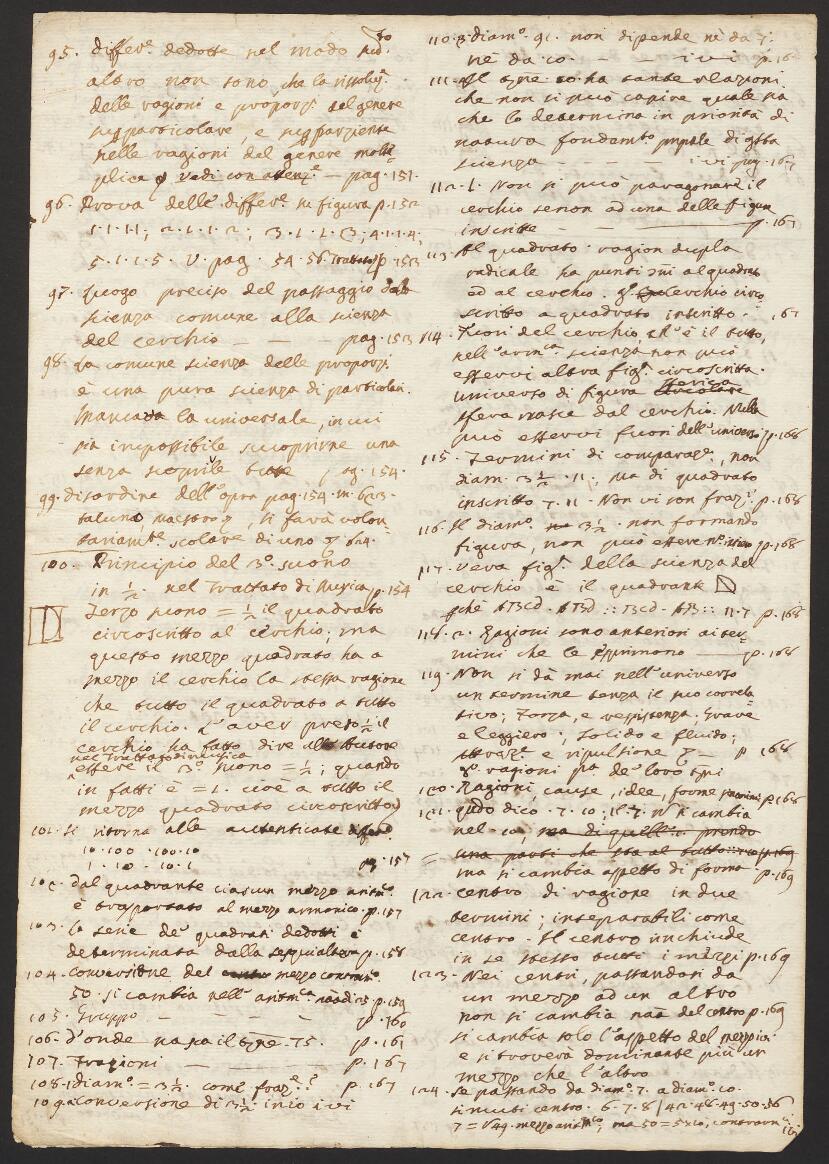 95. differ.e dedotte nel modo
altro non sono, che la
delle ragioni e proporz.i del genere
superparticolare, e superparziente
nelle ragioni del genere molti-
plice vedi con atenz.e — pag. 151.
96. Prova delle differ.e in figura p. 152
1.1.11; 2.1.1.2; 3.1.1.3; 4.1.1.4;
5.1.1.5. V. pag. 54.56. Trattato p. 153
97. Luogo preciso del passaggio dalla
scienza comune alla scienza
del cerchio — — — pag. 153
98. La comune scienza delle proporz.i
è una pura scienza di particolari.
Mancava la universale, in cui
sia impossibile scuoprirne una
senza scoprirle tutte pag. 154.
99. disordine dell'opra pag. 154. m. 623.
taluno, maestro, si farà volon-
tariam.te scolare di uno 624.
100. Principio del 3.o suono
in 1/2 nel Trattato di Musica p. 154
Terzo suono = 1/2 il quadrato
circoscritto al cerchio; ma
questo mezzo quadrato ha a
mezzo il cerchio la stessa ragione
che tutto il quadrato a tutto
il cerchio. L'aver preso 1/2 il
cerchio ha fatto dire
nel Trattato di musica
essere il 3.o suono = 1/2; quando
in fatti è = 1. cioè a tutto il
mezzo quadrato circoscritto
101. Si ritorna alle autenticate
10.100.100.10
1.10.10.1 pag. 157
102. dal quadrante ciascun mezzo aritm.o
è trasportato al mezzo armonico. p. 157
103. la serie de' quadrati dedotti è
determinata dalla sesquialtera p. 158
104. conversione del mezzo
50. si cambia nell'aritm.ca p. 159
105. Gruppo — — — — p. 160
106. d'onde nasca il t͞m͞ne. 75. p. 161
107. Frazioni — — — — p. 167
108. 1 diam.o = 3 1/2 come fraz.e? p. 167
109. 2 conversione di 3 1/2 in 10 ivi
110. 3 diam.o 91. non dipende nè da 7.
nè da 10. — — — ivi p. 16
111. Il t͞m͞ne 10 ha tante relazioni
che non si può capire quale sia
che lo determina in priorità di
natura fondam.te p͞n͞p͞a͞le di q͞s͞ta
scienza — — — — ivi pag. 167
112. 1. Non si può paragonare il
cerchio senon ad una delle figure
inscritte — — — — p. 167
113. Il quadrato. ragion dupla
radicale ha punti al quadrato
ed al cerchio. cerchio circo-
scritto a quadrato inscritto. 167
114. Fuori del cerchio, ch'è il tutto,
nell'arm.ca scienza non può
esservi altra fig.a circoscritta.
universo di figura circolare sferica
sfera nasce dal cerchio. Nulla
può esservi fuori dell'universo p. 168
115. Termini di comparaz.e, non
diam. 3 1/2. 11; ma di quadrato
inscritto 7. 11. Non vi son fraz.i p. 168
116. Il diam.o 3 1/2. non formando
figura, non può essere p. 168
117. Vera fig.a della scienza del
cerchio è il quadrante
ABCD. ABD :: BCD. AB :: 11.7 p. 168
118. 2. Ragioni sono anteriori ai ter-
mini che le esprimono — p. 168
119. Non si dà mai nell'universo
un termine senza il suo correla-
tivo; Forza, e resistenza; Grave
e leggiero; solido e fluido;
attraz.e e ripulsione — p 168
ragioni p.a de' loro t͞m͞ni
120. Ragioni, cause, idee, forme p. 168
121. q͞u͞do dico. 7.10; il 7. si cambia
nel 10; ma di quell'io prendo
una parti che sta al tutto
ma si cambia aspetto di forma p. 169
122. centro di ragione in due
termini; inseparabili come
centro. Il centro inchiude
in se stesso tutti i mezzi p. 169
123. Nei centri, passandosi da
un mezzo ad un altro
non si cambia del centro p. 169
si cambia solo l'aspetto del mezzo
e si troverà dominante più un
mezzo che l'altro
124. Se passando da diam.o 7. a diam.o 10
si muti centro. 6.7.8 | 42.48.49.50.56
7 = √49. mezzo aritm.co; ma 50 = 5x10,
ivi